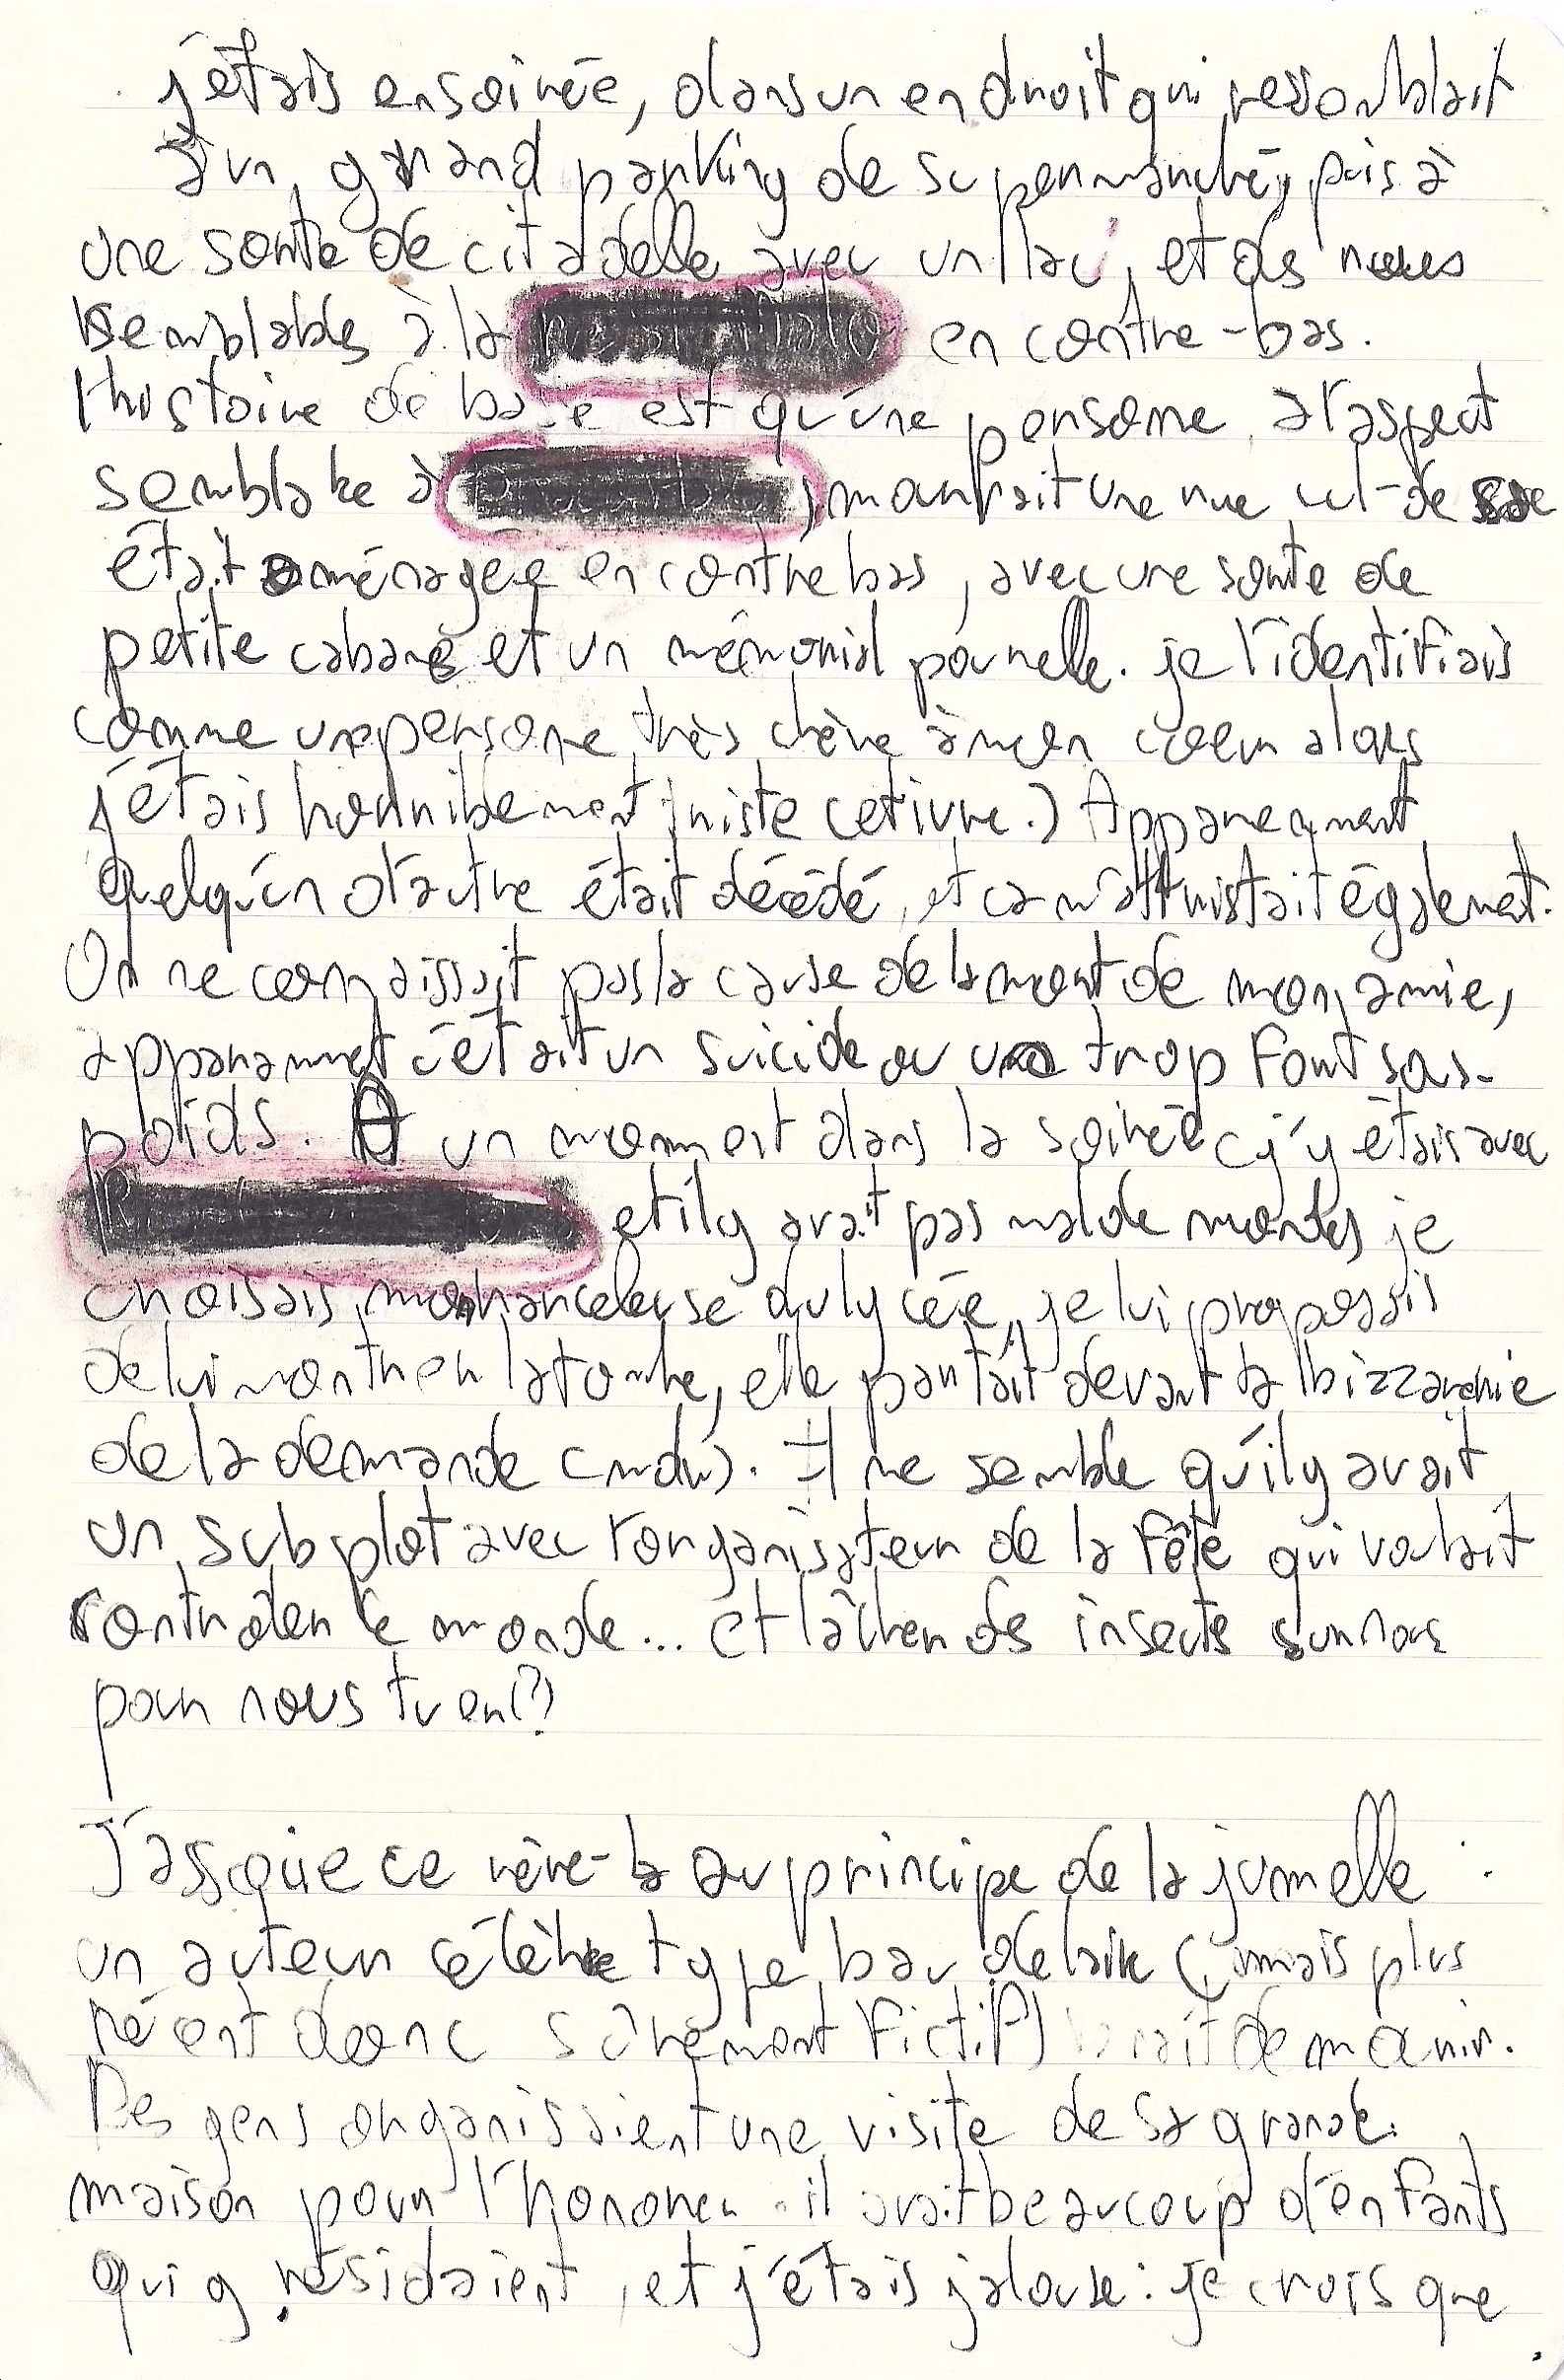 j'étais en soirée, dans un endroit qui ressemblait
à un grand parking de supermarché, puis à
une sorte de citadelle avec un lac, et des rues
semblables à la en contre-bas.
l'histoire de base est qu'une personne, à l'aspect
semblable à , mourrait une rue cul-de sac
était aménagée en contrebas, avec une sorte de
petite cabane et un mémorial pour elle. je l'identifiais
comme une personne très chère à mon coeur alors
j'étais horriblement triste (et ivre.) Apparemment
quelqu'un d'autre était décédé, et ça m'attristait également.
On ne connaissait pas la cause de la mort de mon amie,
apparamment c'était un suicide ou un trop fort sous-
poids. A un moment dans la soirée (j'y étais avec
et il y avait pas mal de monde) je
choisais mon harceleuse du lycée, je lui proposais
de lui montrer la tombe, elle partait devant la bizzarerie
de la demande (mdr). Il me semble qu'il y avait
un subplot avec l'organisateur de la fête qui voulait
contrôler le monde... et lâcher des insectes sur nous
pour nous tuer(?)
J'associe ce rêve-là au principe de la jumelle :
un auteur célèbre type baudelaire (mais plus
récent donc sûrement fictif) venait de mourir.
Des gens organisaient une visite de sa grande
maison pour l'honorer. il avait beaucoup d'enfants
qui y résidaient, et j'étais jalouse : je crois que